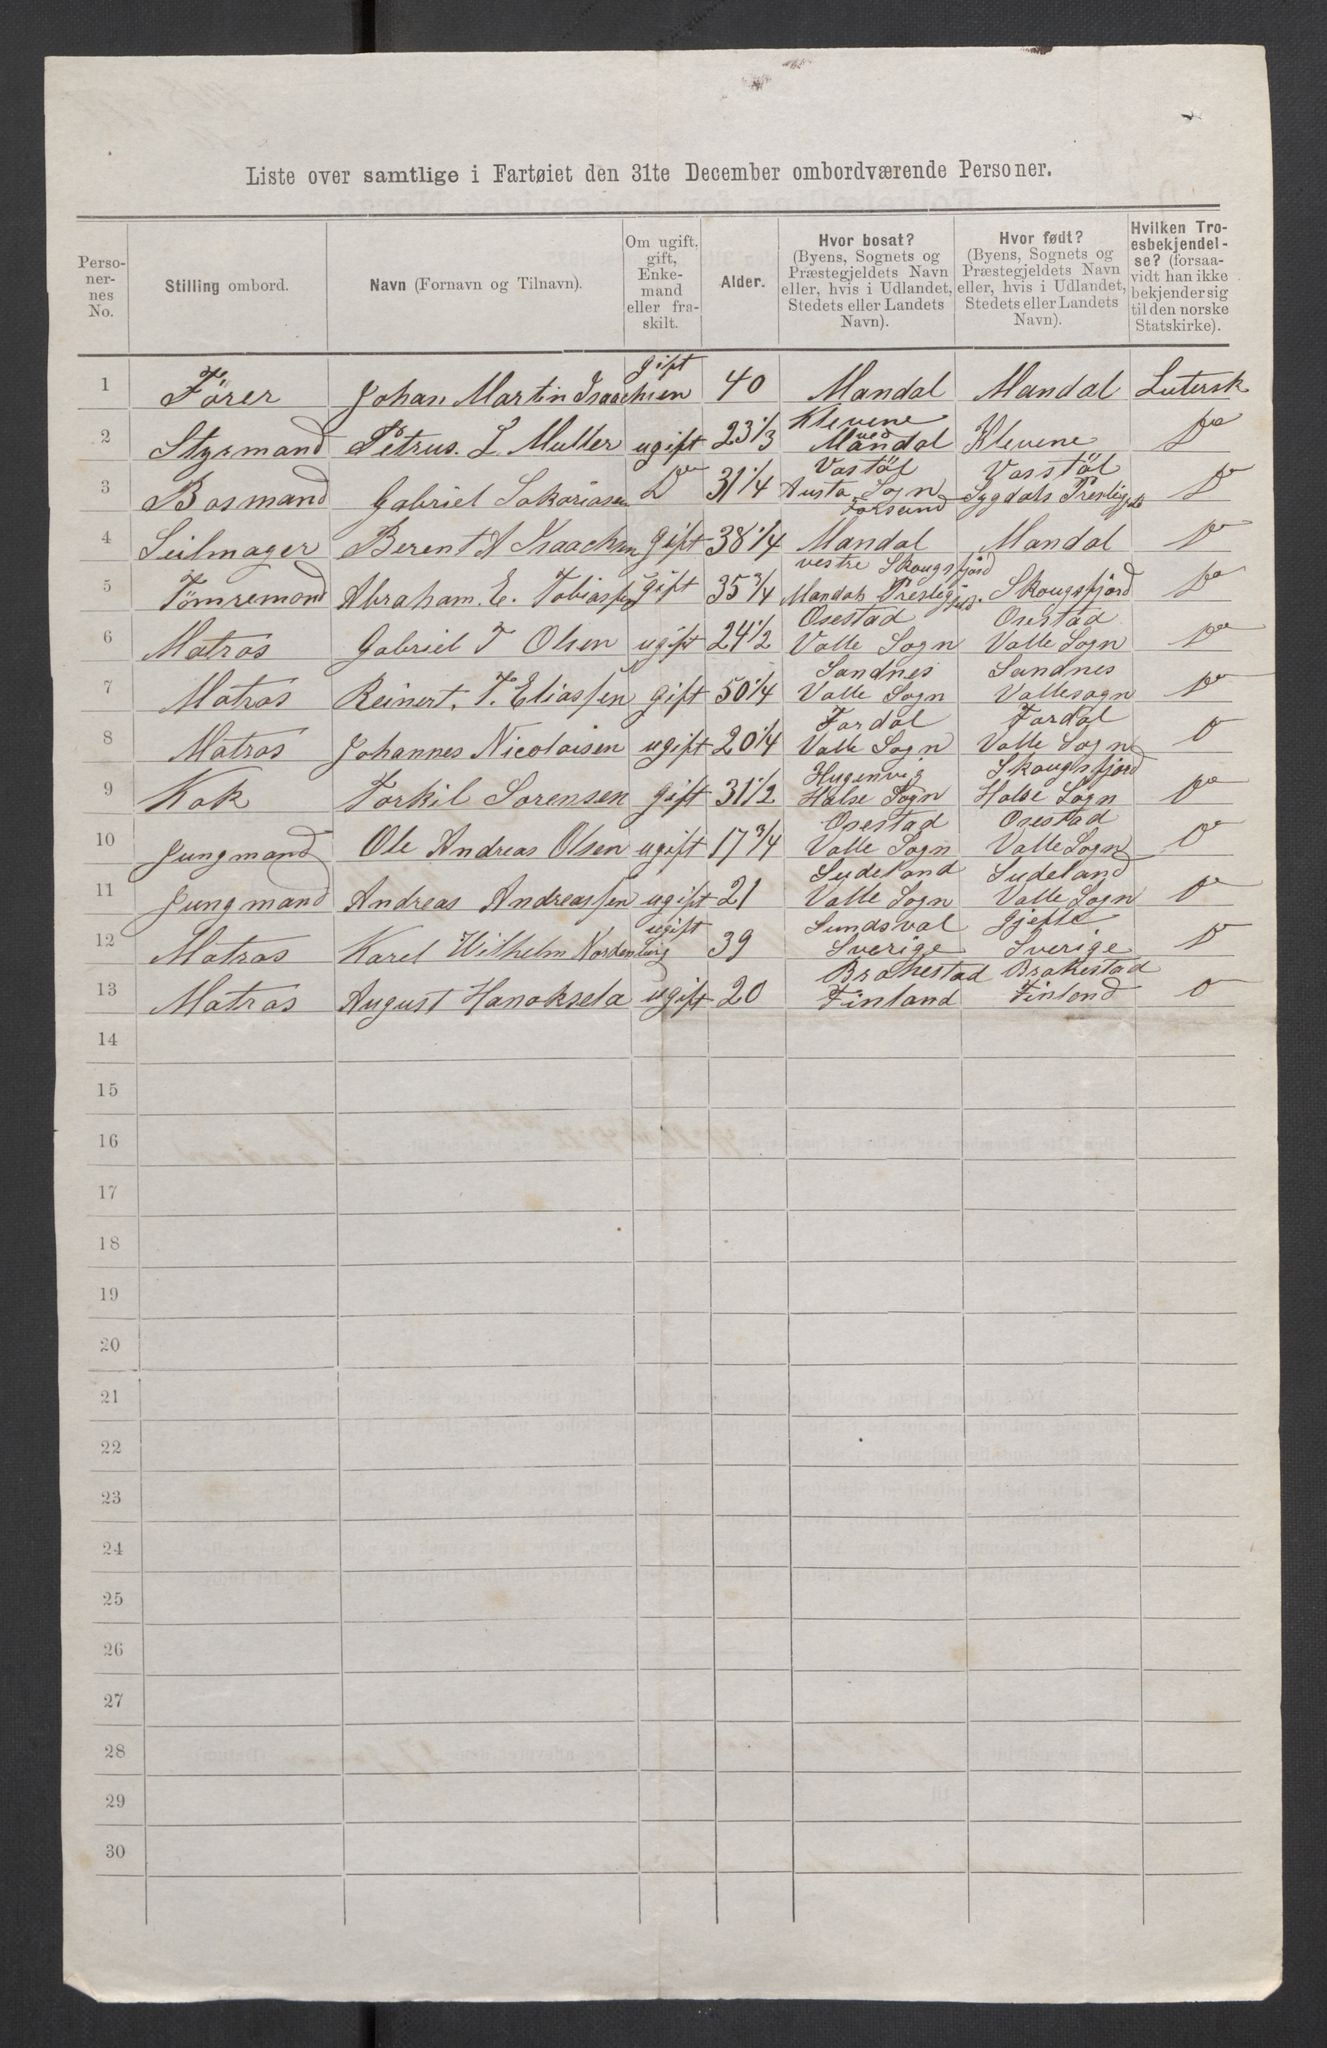 Liste over samtlige i Fartøiet den 31te December ombordværende Personer.
Perso-
ner-
nes
No.
Stilling ombord.
Navn (Fornavn og Tilnavn).
Om ugift,
gift,
Enke-
mand
eller fra-
skilt.
Alder.
Hvor bosat?
(Byens, Sognets og
Præstegjeldets Navn
eller, hvis i Udlandet,
Stedets eller Landets
Navn).
Hvor født?
(Byens, Sognets og
Præstegjeldets Navn
eller, hvis i Udlandet,
Stedets eller Landets
Navn).
Hvilken Tro-
esbekjendel-
se? (forsaa-
vidt han ikke
bekjender sig
til den norske
Statskirke).
1 Förer Johan Martin Isaachsen gift 40 Mandal Mandal Lutersk
2 Styrmand Petrus. L Muller ugift 23 1/3 Klevene ved Mandal Klevene Do
3 Bosmand Gabriel Sakariasen Do 31 1/4 Vastöl Austa Sogn Vasstöl Sygdals Do
4 Seilmager Berent A Isaachsen gift 38 1/4 Mandal Mandal Do
5 Tömremand Abraham. E. Tobiassen gift 35 3/4 vestre Skougsfjord Mandals Skougsfjord Do
6 Matros Gabriel T Olsen ugift 24 1/2 Osestad Valle Sogn Osestad Valle Sogn Do
7 Matros Reinert. T. Eliassen gift 50 1/4 Sandnes Valle Sogn Sandnes Vallesogn Do
8 Matros Johannes Nicolaisen ugift 20 1/4 Fardal Valle Sogn Fardal Valle Sogn Do
9 Kok Torkil Sorensen gift 31 1/2 Hugenvig Halse Sogn Skougsfjord Halse Sogn Do
10 Jungmand Ole Andreas Olsen ugift 17 3/4 Osestad Valle Sogn Osestad Valle Sogn Do
11 Jungmand Andreas Andreassen ugift 21 Sudeland Valle Sogn Sudeland Valle Sogn Do
12 Matros Karel Wilhelm Nordenburg ugift 39 Sundsval Sverige Gjefle Sverige Do
13 Matros August Hanoksela ugift 20 Brakestad Finland Brakestad Finland Do
14
15
16
17
18
19
20
21
22
23
24
25
26
27
28
29
30